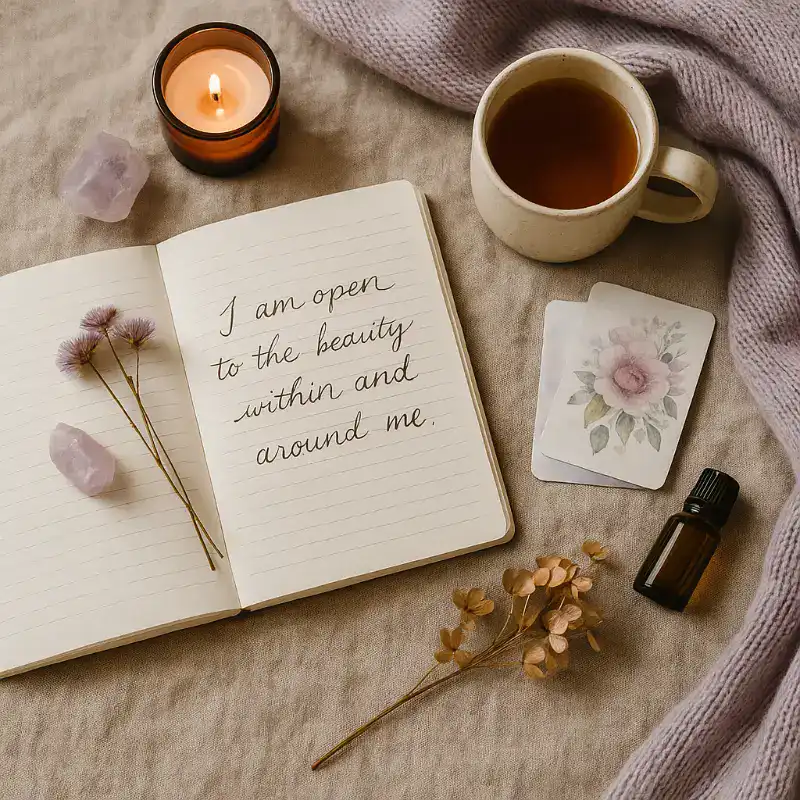 I am open
to the beauty
within and
around me.